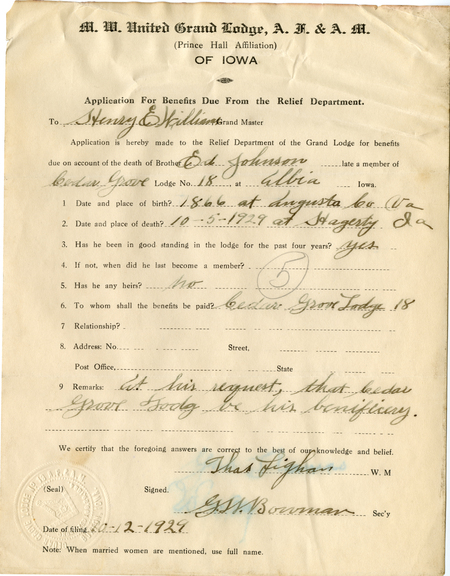 M. W. United Grand Lodge, A. F. & A. M.
(Prince Hall Affiliation)
OF IOWA
Application For Benefits Due From the Relief Department.
To Henry E Williams Grand Master
Application is hereby made to the Relief Department of the Grand Lodge for benefits
due on account of the death of Brother Ed Johnson late a member of
Cedar Grove Lodge No. 18 at Albia Iowa.
1 Date and place of birth? 1866 at Augusta Co Va
2 Date and place of death? 10-5-1929 at Hagerty Ia
3 Has he been in good standing in the lodge for the past four years? yes
4 If not, when did he last become a member?
5 Has he any heirs? no 5
6 To whom shall the benefits be paid? Cedar Grove Lodge 18
7 Relationship?
8 Address: No. Street,
Post Office, State
9 Remarks: At his request, that Cedar
Grove Lodg be his benificiery.
We certify that the foregoing answers are correct to the best of our knowledge and belief.
W. M
(Seal) Signed.
G.W. Bowman Sec'y
Date of filing 10-12-1929
Note: When married women are mentioned, use full name.